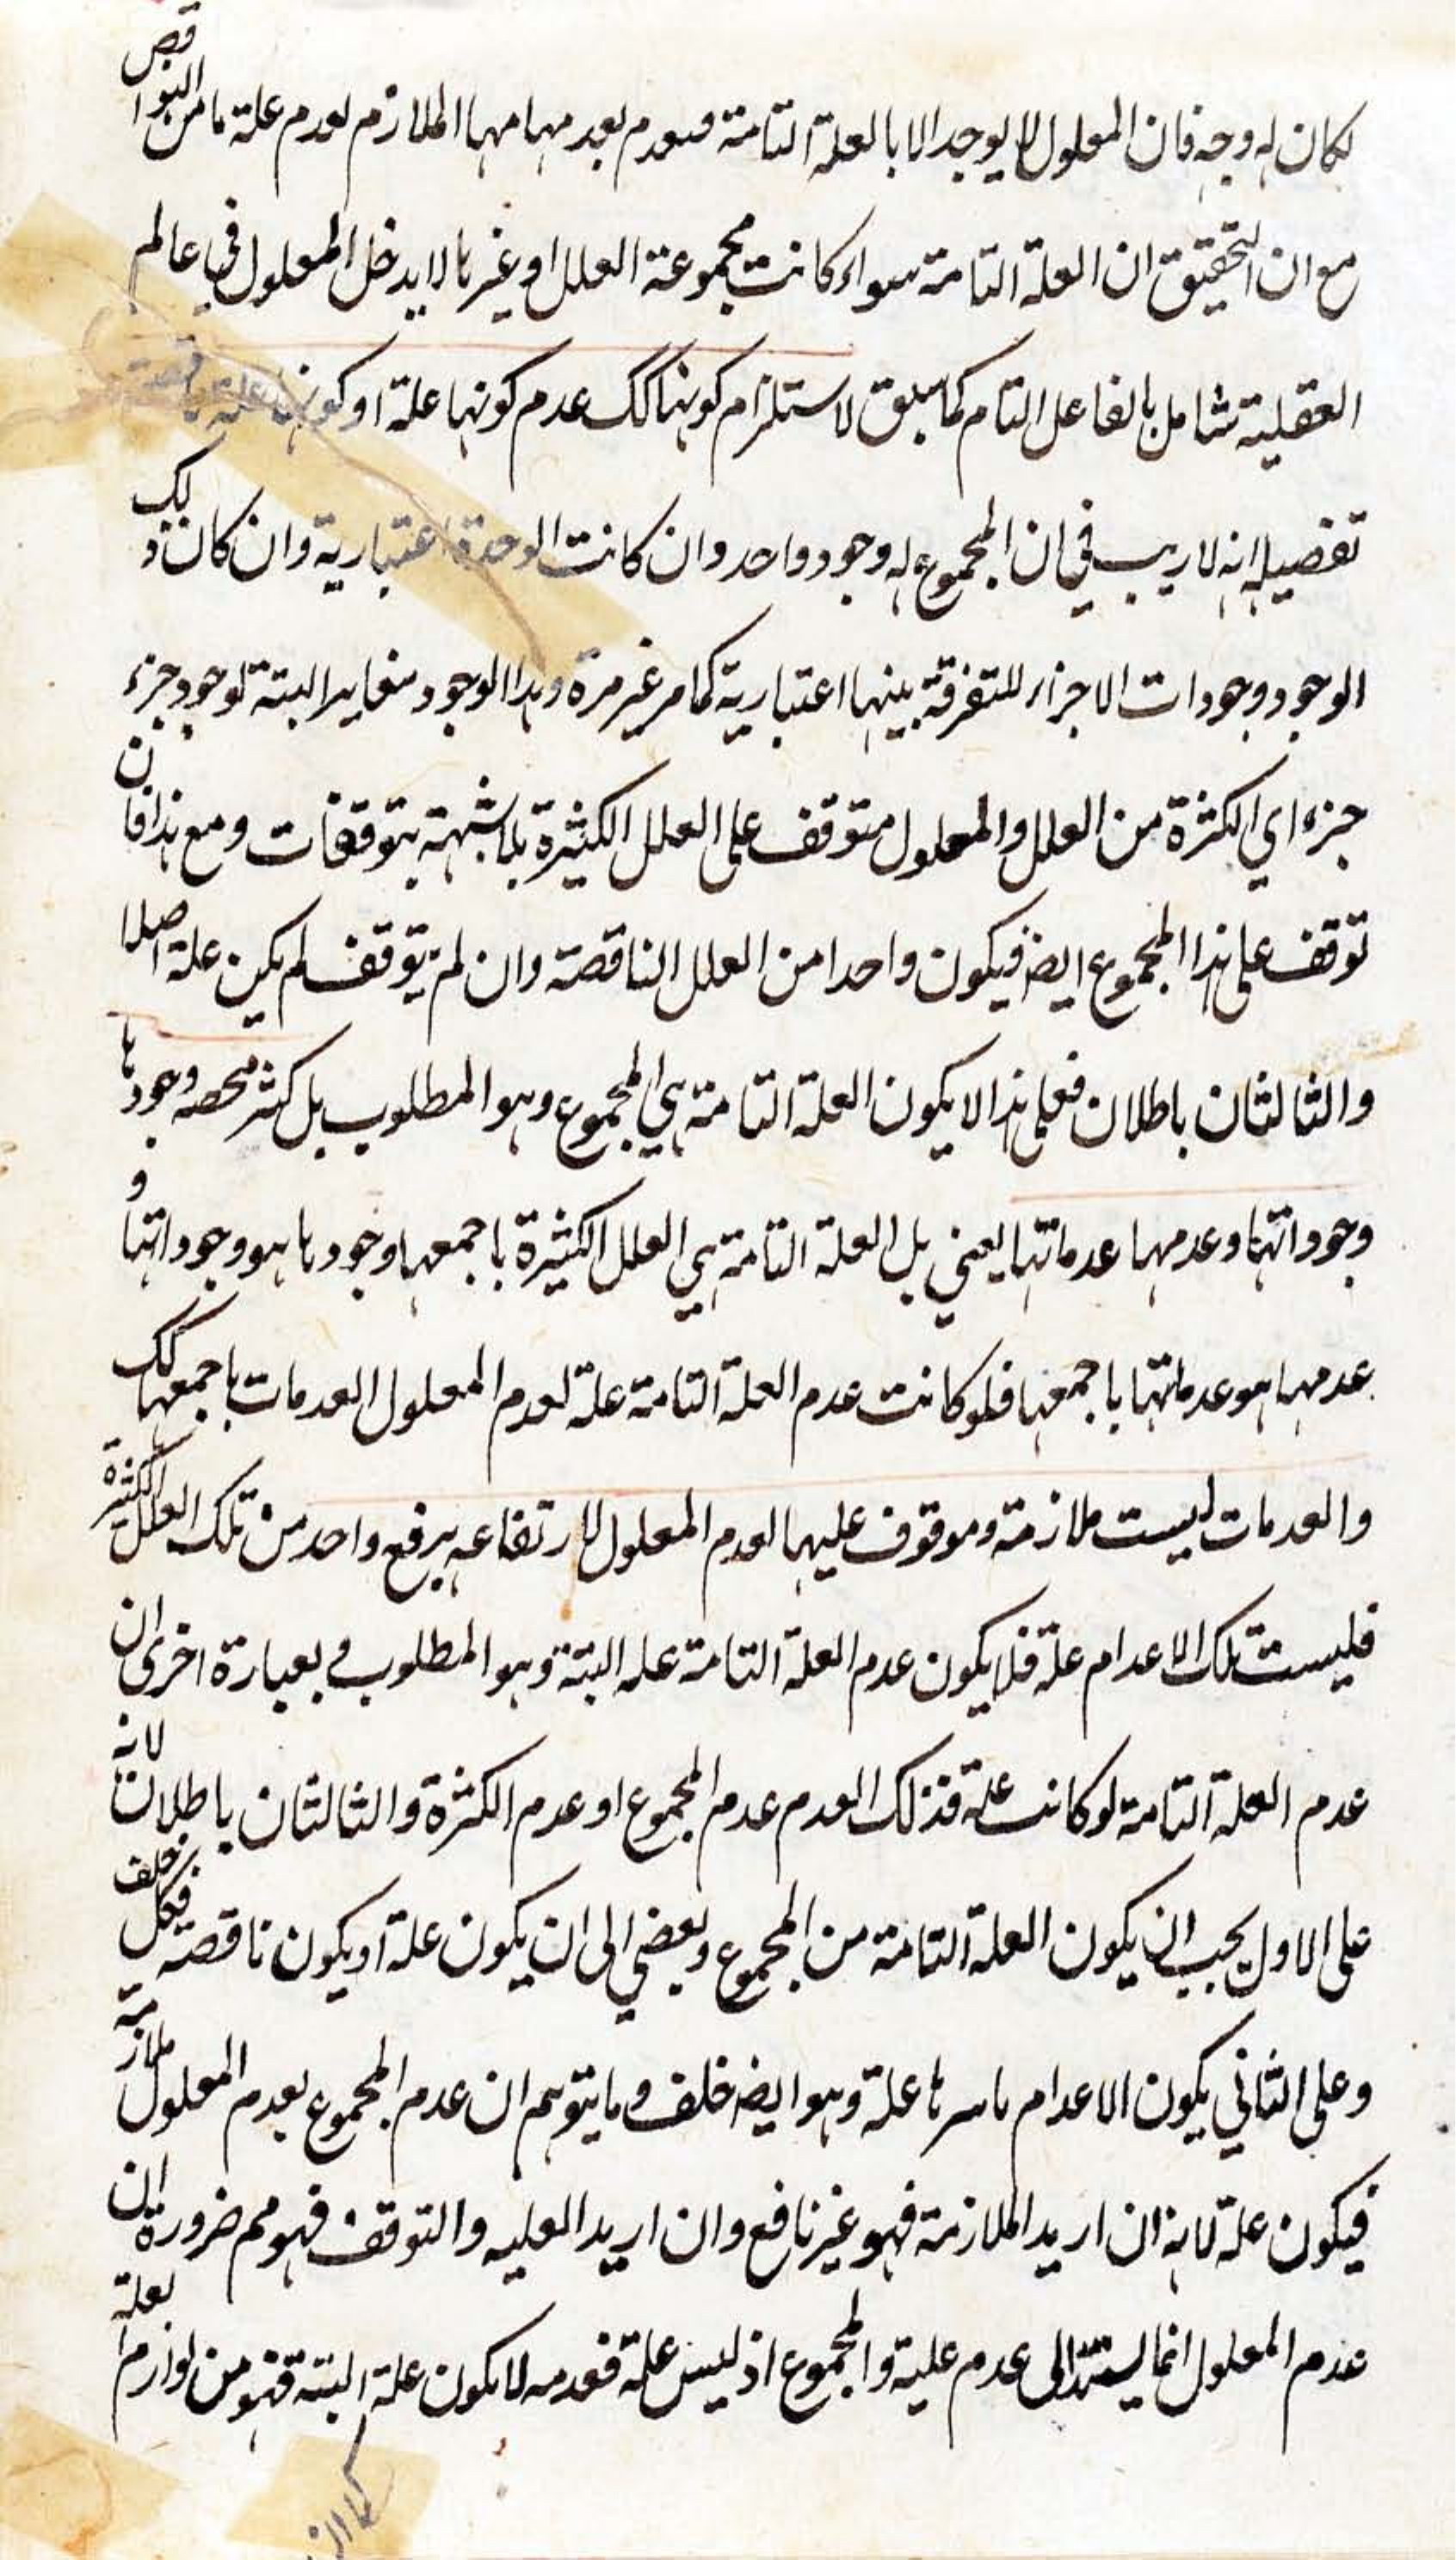 لكان له وجه فان المعلول لا يوجد الا بالعلة التامة فيعدم بعدمها مهما الملازم لعدم علة ما من النواقص
مع ان التحقيق ان العلة التامة سواء كانت مجموعة العلل او غيرها لا يدخل المعلول في عالم
العقلية شامل بالفاعل التام كما سبق لاستلزام كونها كك عدم كونها علة او كونها علة ناقصة
تفصيله انه لا ريب في ان المجموع له وجود واحد وان كانت الوحدة اعتبارية وان كان ذلك
الوجود وجودات الاجزاء للتفرقة بينهما اعتبارية كما مر غير مرة وهذا الوجود مغاير البتة لوجود جزء
جزء اي الكثرة من العلل والمعلول متوقف على العلل الكثيرة بلا شبهة بتوقفات ومع هذا فان
توقف على هذا المجموع ايضا فيكون واحدا من العلل الناقصة وان لم يتوقف لم يكن علة اصلا
والثالثان باطلان فعلى هذا لا يكون العلة التامة هي المجموع وهو المطلوب بل كثر محصه وجودها
وجوداتها وعدمها عدماتها يعني بل العلة التامة هي العلل الكثيرة باجمعها وجودها هو وجوداتها و
عدمها هو عدماتها باجمعها فلو كانت عدم العلة التامة علة لعدم المعلول العدمات باجمعها كك
والعدمات ليست ملازمة وموقوف عليها لعدم المعلول لارتفاعه برفع واحد من تلك العلل الكثيرة
فليست تلك الاعدام علة فلا يكون عدم العلة التامة علة البتة وهو المطلوب و بعبارة اخرى ان
عدم العلة التامة لو كانت علة فذلك العدم عدم المجموع او عدم الكثرة والثالثان باطلان لانه
على الاول يجب ان يكون العلة التامة من المجموع ويفضي الى ان يكون علة او يكون ناقصة فكل خلف
وعلى الثاني يكون الاعدام باسرها علة وهو ايضا خلف وما يتوهم ان عدم المجموع بعدم المعلول ملازمة
فيكون علة لانه ان اريد الملازمة فهو غير نافع وان اريد العلية والتوقف فهو مم ضرورة ان
عدم المعلول انما يستند الى عدم علية والمجموع اذ ليس علة فعدمه لا يكون علة البتة فهو من لوازم لعلة